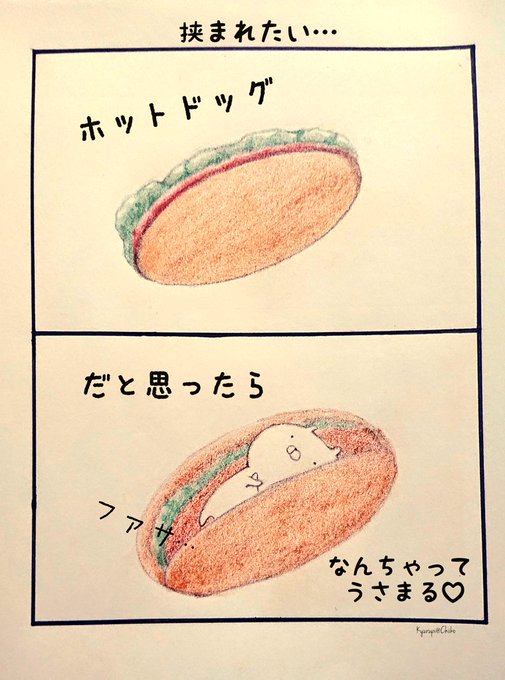 挟まれたい…
ホットドッグ
だと思ったら
ファサ..
なんちゃって
うさまる♡